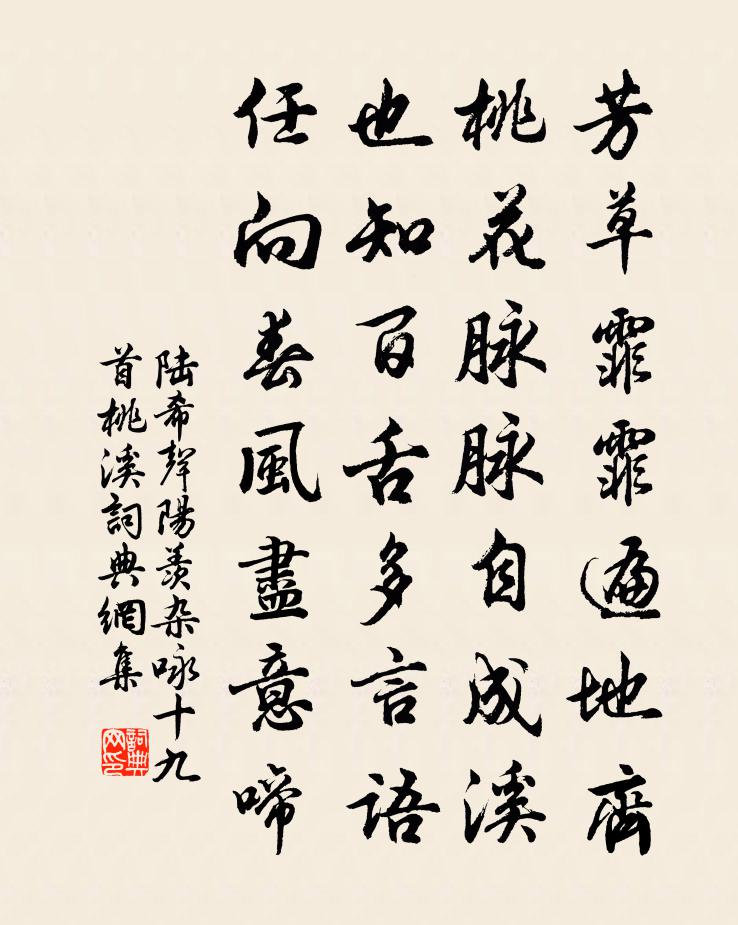 芳草霏霏遍地齊
桃花脉脉自成溪
也知百舌多言語
任向春風盡意啼
陸希聲陽羨杂咏十九
首桃溪詞典網集
詞典
网印